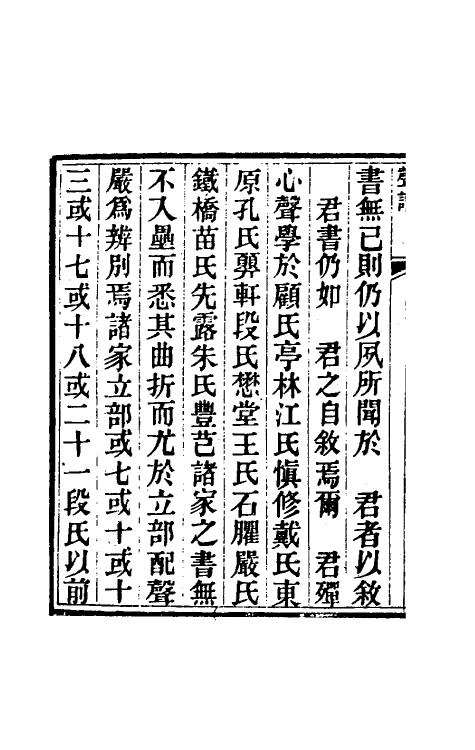 聲譜
書無已則仍以夙所聞於　君者以敘
君書仍如　君之自敘焉爾　君殫
心聲學於顧氏亭林江氏愼修戴氏東
原孔氏顨軒段氏懋堂王氏石臞嚴氏
鐵橋苗氏先露朱氏豐芑諸家之書無
不入壘而悉其曲折而尤於立部配聲
嚴爲辨別焉諸家立部或七或十或十
三或十七或十八或二十一段氏以前